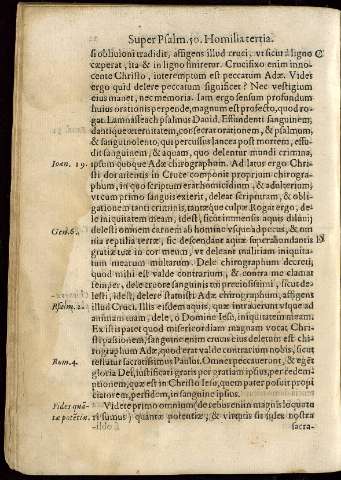 Super Psalm. 50. Homilia tertia.
si obliuioni tradidit, affigens illud cruci, vt sicut à ligno
cœperat, ita & in ligno finiretur. Crucifixo enim inno-
cente Christo, interemptum est peccatum Adæ. Vides
ergo quid delere peccatum significet? Nec vestigium
eius manet, nec memoria. Iam ergo sensum profundum
huius orationis perpende, magnum est profecto, quod ro-
gat. Lamōsileach psalmus Dauid. Effundenti sanguinem,
dantique æternitatem, consecrat orationem, & psalmum,
& sanguinolento, qui percussus lancea post mortem, effu-
dit sanguinem, & aquam, quo delentur mundi crimina,
ipsumque Adæ chirographum. Ad latus ergo Chri-
sti dormientis in Cruce componit proprium chirogra-
phum, in quo scriptum erat homicidium, & adulterium,
vt cum primo sanguis exierit, deleat scripturam, & obli-
gationem tanti criminis, tantæque culpæ. Rogat ergo, de-
le iniquitatem meam, idest, sicut immensis aquis diluuij
delesti omnem carnem ab homine vsque ad pecus, & om
nia reptilia terræ, sic descendat aqua superabundantis
gratiæ tuæ in cor meum, vt deleant malitiam iniquita-
tum mearum multarum. Dele chirographum decreti,
quod mihi est valde contrarium, & contra me clamat
semper, dele cruore sanguinis tui preciosissimi, sicut de-
lesti, idest, delere statuisti Adæ chirographum, affigens
illud Cruci. Illis eisdem aquis, quæ intrauerunt vsque ad
animam tuam, dele, o Domine Iesu, iniquitatem meam.
Ex istis patet quod misericordiam magnam vocat Chri-
sti passionem, sanguine enim crucis eius deletum est chi-
rographum Adæ, quod erat valde contrarium nobis, sicut
refert sacratissimus Paulus. Omnes peccauerunt, & egēt
gloria Dei, iustificati gratis per gratiam ipsius, per redem-
ptionem, quæ est in Christo Iesu, quem pater posuit propi
ciatorem, per fidem, in sanguine ipsius.
Videte primo omnium, de rebus enim magnis loquutu
ri sumus, quantæ potentiæ, & virtutis sit fides nostra
sacra-
Ioan. 19.
Gen. 6.
Psalm. 2.
Rom. 4.
Fides quā-
tæ potētiæ.
C
D